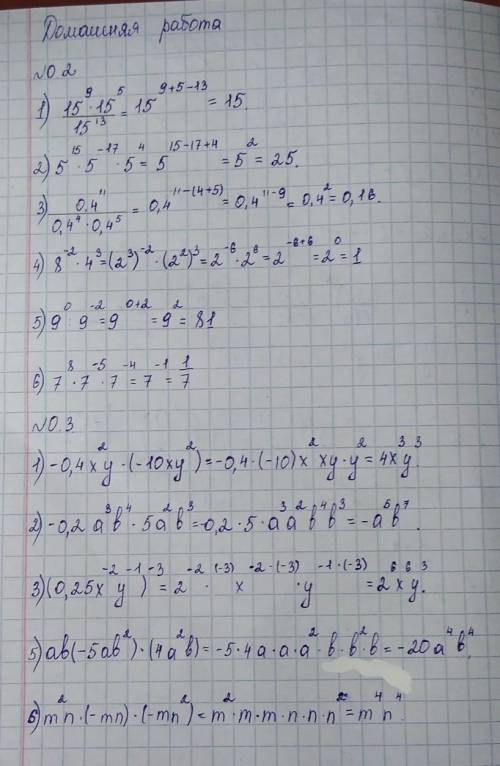 Домашняя работа
№0.2
1) (15⁹·15⁵)/15¹³ = 15⁹⁺⁵⁻¹³ = 15.
2) 5¹⁵·5⁻¹⁷·5⁴ = 5¹⁵⁻¹⁷⁺⁴ = 5² = 25.
3) 0,4¹¹/(0,4⁴·0,4⁵) = 0,4¹¹⁻⁽⁴⁺⁵⁾ = 0,4¹¹⁻⁹ = 0,4² = 0,16.
4) 8⁻²·4³ = (2³)⁻²·(2²)³ = 2⁻⁶·2⁶ = 2⁻⁶⁺⁶ = 2⁰ = 1
5) 9⁰:9⁻² = 9⁰⁺² = 9² = 81
6) 7⁸·7⁻⁵·7⁻⁴ = 7⁻¹ = 1/7
№0.3
1) -0,4x²y·(-10xy²) = -0,4·(-10)x²xy·y² = 4x³y³.
2) -0,2a³b⁴·5a²b³ = -0,2·5·a³a²b⁴b³ = -a⁵b⁷.
3) (0,25x⁻²y⁻¹)⁻³ = 2⁻²·⁽⁻³⁾·x⁻²·⁽⁻³⁾·y⁻¹·⁽⁻³⁾ = 2⁶x⁶y³.
5) ab(-5ab²)·(4a²b) = -5·4a·a·a²·b·b²·b = -20a⁴b⁴.
6) m²n·(-mn)·(-mn²) = m²·m·m·n·n·n² = m⁴n⁴.